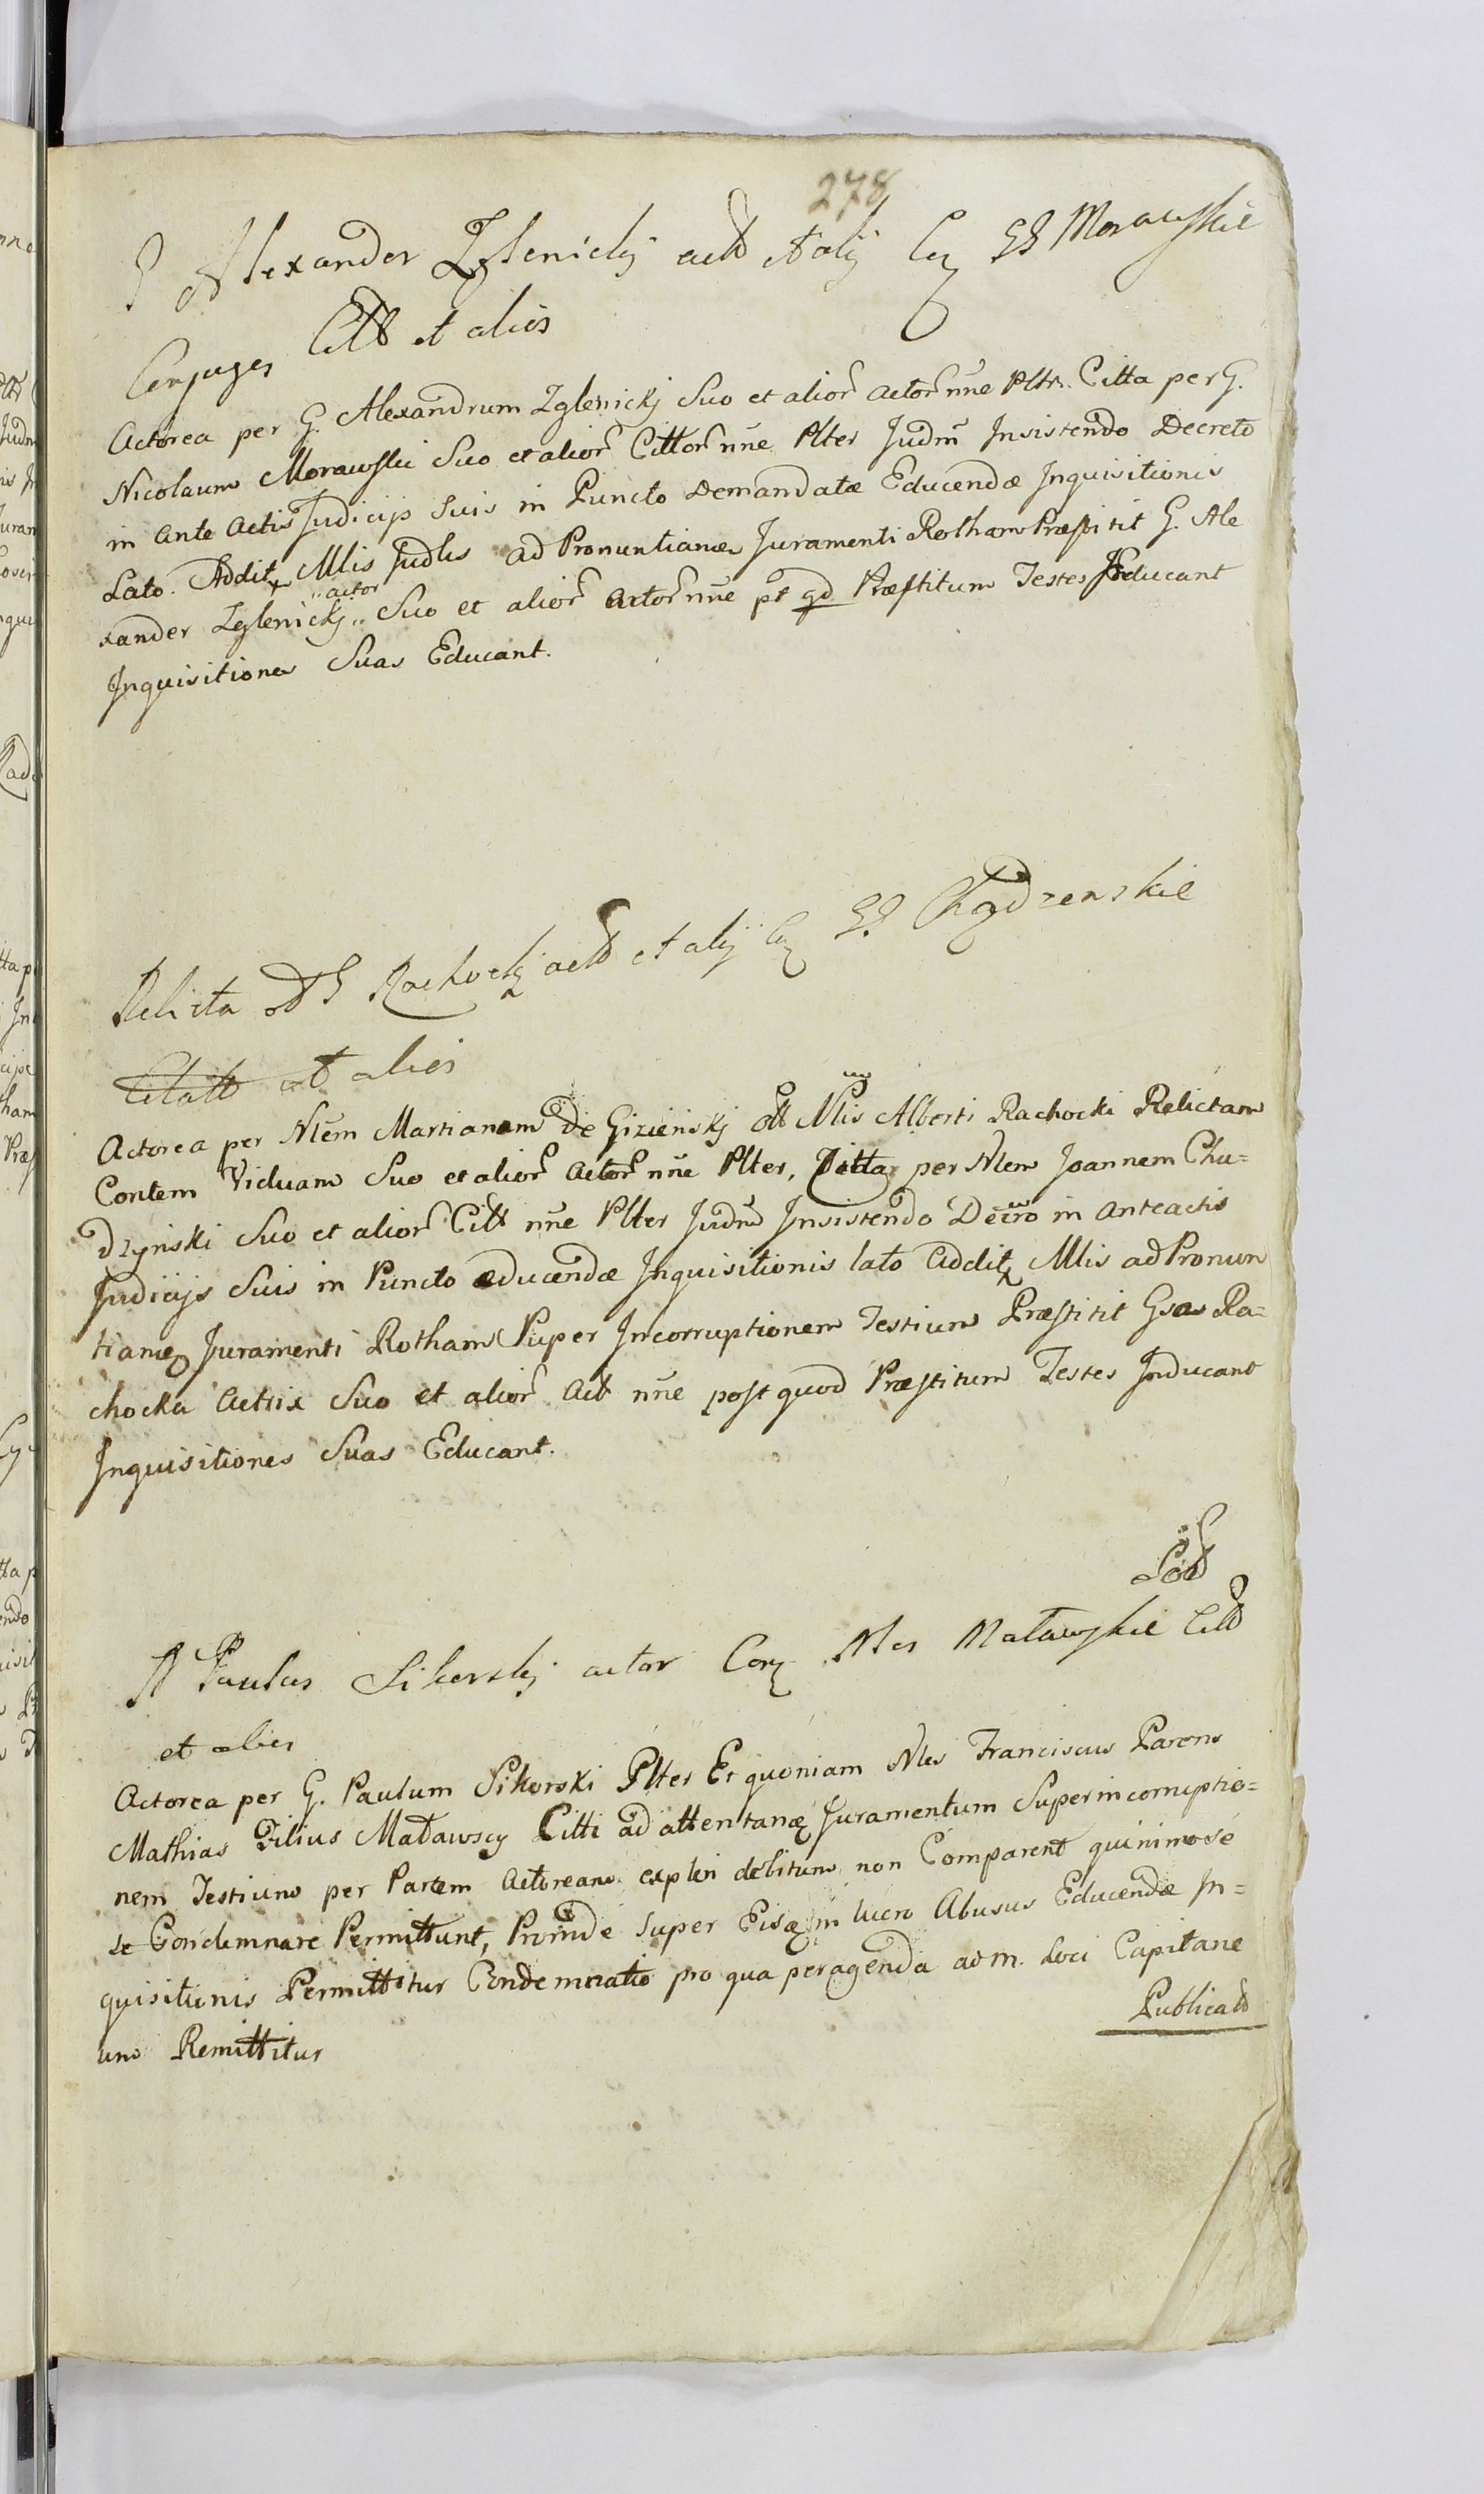 278
G Alexander Zglenickj actt et alij Cu GG Morawskie
Conjuges Citt et alios
Actorea per G. Alexandrum Zglenickj Suo et alior actor nne Pltr. Citta per G.
Nicolaum Morawski Suo et alior Cittor nne Plter Judm Insistendo Decreto
in ante actis Judicijs Suis in Puncto Demandatæ Educendæ Inquisitionis
Lato. Addit Mlis Judlis ad Pronuntianæ Juramenti Rotham Præstitit G. Ale
xander Zglenickj "actor" Suo et alior Actor nne pt qd Præstitum Testes Inducant
Inquisitiones Suas Educant.
Relicta ol G Rachockj actt et alij Cu GG Chądzenskie
Citatt et alios
Actorea per Nlem Martianam de Gizienskj ol Nlis Alberti Rachocki Relictam
Contem Viduam Suo et alior Actor nne Plter, Citta per Nlem Joannem Chu=
dzynski Suo et alior Citt nne Plter Judm Insistendo Decro in anteactis
Judicijs Suis in Puncto Educendæ Inquisitionis lato Addit Mlis ad Pronun
tianæ Juramenti Rotham Super Incorruptionem Testium Præstitit Gsa Ra=
chocka Actrix Suo et alior Act nne post quod Præstitum Testes Inducant
Inquisitiones Suas Educant.
N Paulus Sikorskj actor Con Nles Matawskie Citt
et alios
Actorea per G. Paulum Sikorski Plter Et quoniam Nles Franciscus Parens
Mathias Filius Matawscy Citti ad attentanæ Juramentum Super incorruptio=
nem Testium per Partem Actoream expleri debitum non Comparent quinimo se
se Condemnare Permittunt, Proinde Super Eisq in lucro Abusus Educendæ In=
quisitionis Permittitur Condemnatio pro qua peragenda ad m. Loci Capitane
um Remittitur
Publicatt